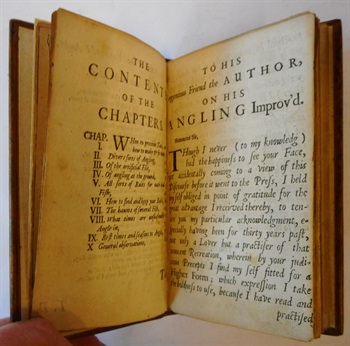 THE
CONTENTS
OF THE
CHAPTERS.
CHAP.
I. When to provide Tools, and
how to make
II. Divers sorts of Angling,
III. Of the artificial Fly,
IV. Of angling at the ground,
V. All sorts of Baits for each
Fish,
VI. How to find and keep your Baits,
VII. The haunts of several Fish,
VIII. What times are
Angle in,
IX. Best times and seasons to Angle,
X General observations,
TO HIS
Ingenious Friend the AUTHOR,
ON HIS
ANGLING Improv'd.
Honoured Sir,
THough I never (to my knowledg)
had the happiness to see your Face,
accidentally coming to a view of this
Discourse before it went to the Press, I held
my self obliged in point of gratitude for the
great advantage I received thereby, to ten-
der you my particular acknowledgment, e-
specially having been for thirty years past,
not only a Lover but a practiser of that
innocent Recreation, wherein by your judi-
cious Precepts I find my self fitted for a
Higher Form; which expression I take
the boldness to use, because I have read and
practised